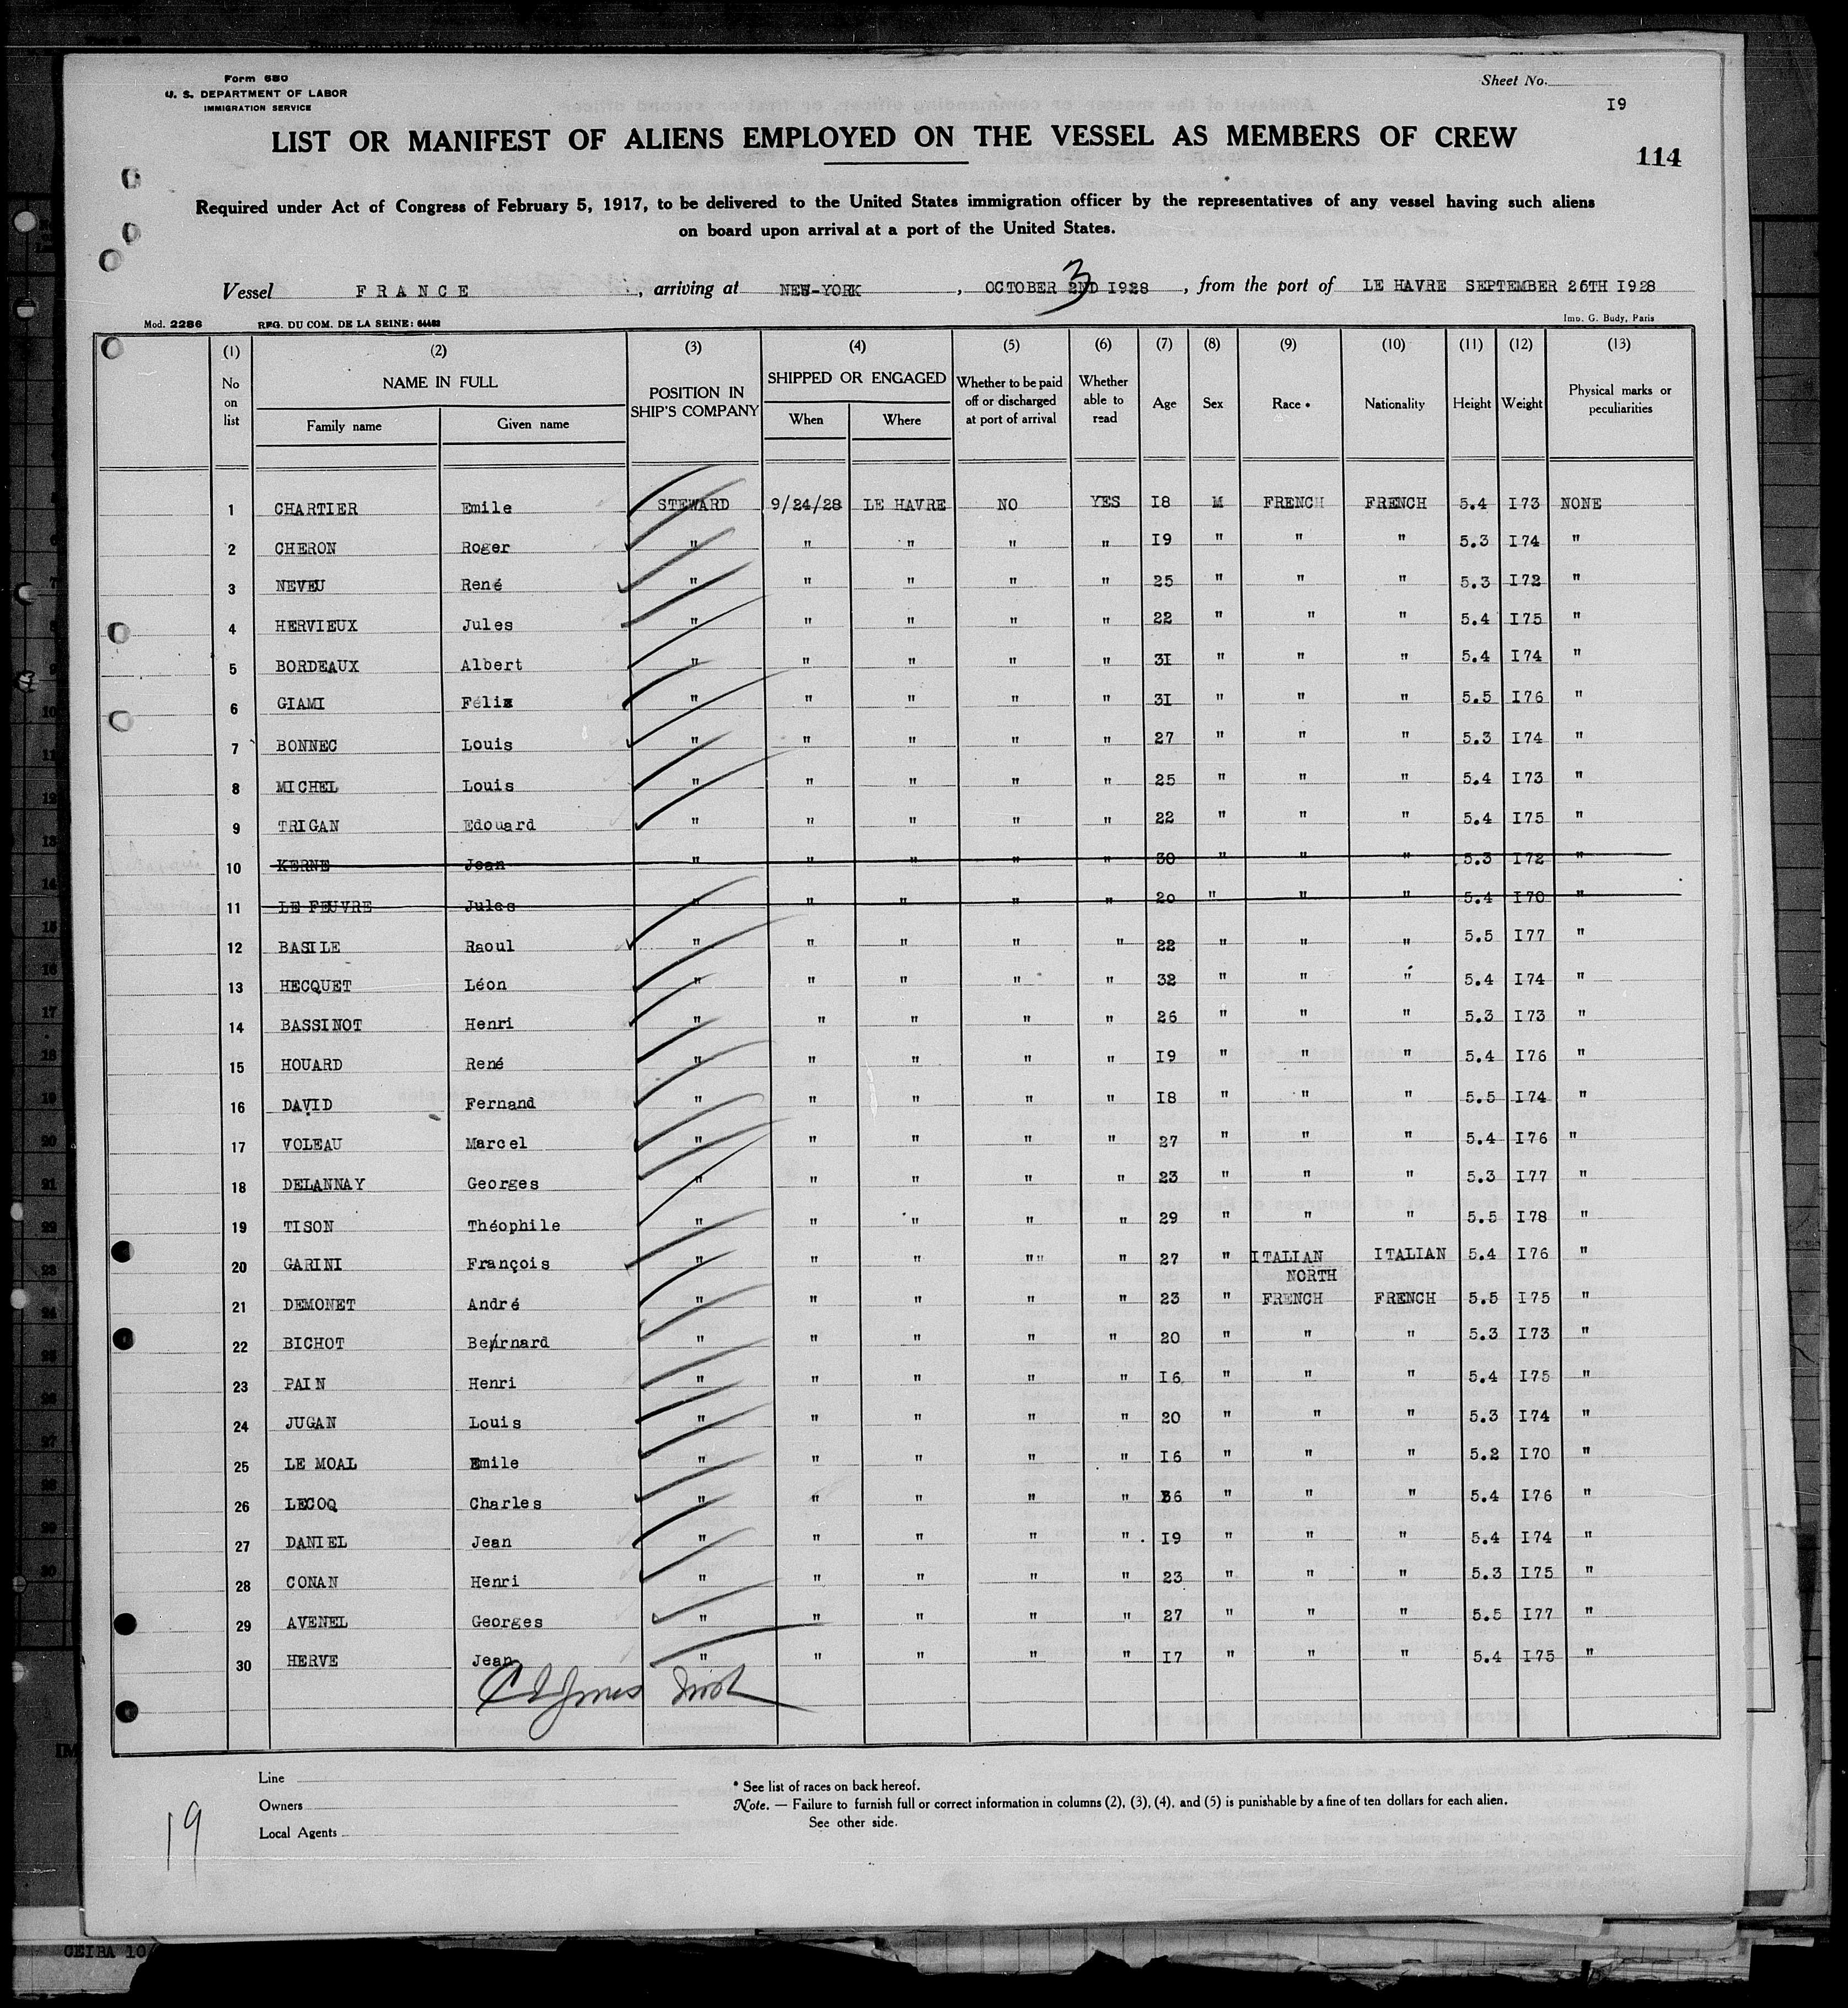 Form 680
U. S. DEPARTMENT OF LABOR
IMMIGRATION SERVICE
Sheet No.
I9
LIST OR MANIFEST OF ALIENS EMPLOYED ON THE VESSEL AS MEMBERS OF CREW
114
Required under Act of Congress of February 5, 1917, to be delivered to the United States immigration officer by the representatives of any vessel having such aliens
on board upon arrival at a port of the United States.
Vessel FRANCE, arriving at NEW-YORK, OCTOBER 2ND I928 3, from the port of LE HAVRE SEPTEMBER 26TH I928
Mod. 2286 REG. DU COM. DE LA SEINE: 64483 Imp. G. Budy, Paris
(1) (2) (3) (4) (5) (6) (7) (8) (9) (10) (11) (12) (13)
No on list NAME IN FULL Family name Given name POSITION IN SHIP'S COMPANY SHIPPED OR ENGAGED When Where Whether to be paid off or discharged at port of arrival Whether able to read Age Sex Race * Nationality Height Weight Physical marks or peculiarities
1 CHARTIER Emile STEWARD 9/24/28 LE HAVRE NO YES I8 M FRENCH FRENCH 5.4 I73 NONE
2 CHERON Roger " " " " " I9 " " " 5.3 I74 "
3 NEVEU René " " " " " 25 " " " 5.3 I72 "
4 HERVIEUX Jules " " " " " 22 " " " 5.4 I75 "
5 BORDEAUX Albert " " " " " 3I " " " 5.4 I74 "
6 GIAMI Félix " " " " " 3I " " " 5.5 I76 "
7 BONNEC Louis " " " " " 27 " " " 5.3 I74 "
8 MICHEL Louis " " " " " 25 " " " 5.4 I73 "
9 TRIGAN Edouard " " " " " 22 " " " 5.4 I75 "
10 KERNE Jean " " " " " 30 " " " 5.3 I72 "
11 LE FEUVRE Jules " " " " " 20 " " " 5.4 I70 "
12 BASILE Raoul " " " " " 22 " " " 5.5 I77 "
13 HECQUET Léon " " " " " 32 " " " 5.4 I74 "
14 BASSINOT Henri " " " " " 26 " " " 5.3 I73 "
15 HOUARD René " " " " " I9 " " " 5.4 I76 "
16 DAVID Fernand " " " " " I8 " " " 5.5 I74 "
17 VOLEAU Marcel " " " " " 27 " " " 5.4 I76 "
18 DELANNAY Georges " " " " " 23 " " " 5.3 I77 "
19 TISON Théophile " " " " " 29 " " " 5.5 I78 "
20 GARINI François " " " "" " 27 " ITALIAN NORTH ITALIAN 5.4 I76 "
21 DEMONET André " " " " " 23 " FRENCH FRENCH 5.5 I75 "
22 BICHOT Bernard " " " " " 20 " " " 5.3 I73 "
23 PAIN Henri " " " " " I6 " " " 5.4 I75 "
24 JUGAN Louis " " " " " 20 " " " 5.3 I74 "
25 LE MOAL Emile " " " " " I6 " " " 5.2 I70 "
26 LECOQ Charles " " " " " 36 " " " 5.4 I76 "
27 DANIEL Jean " " " " " I9 " " " 5.4 I74 "
28 CONAN Henri " " " " " 23 " " " 5.3 I75 "
29 AVENEL Georges " " " " " 27 " " " 5.5 I77 "
30 HERVE Jean " " " " " I7 " " " 5.4 I75 "
Line
Owners
Local Agents
* See list of races on back hereof.
Note. — Failure to furnish full or correct information in columns (2), (3), (4), and (5) is punishable by a fine of ten dollars for each alien.
See other side.
19
CEIBA 10